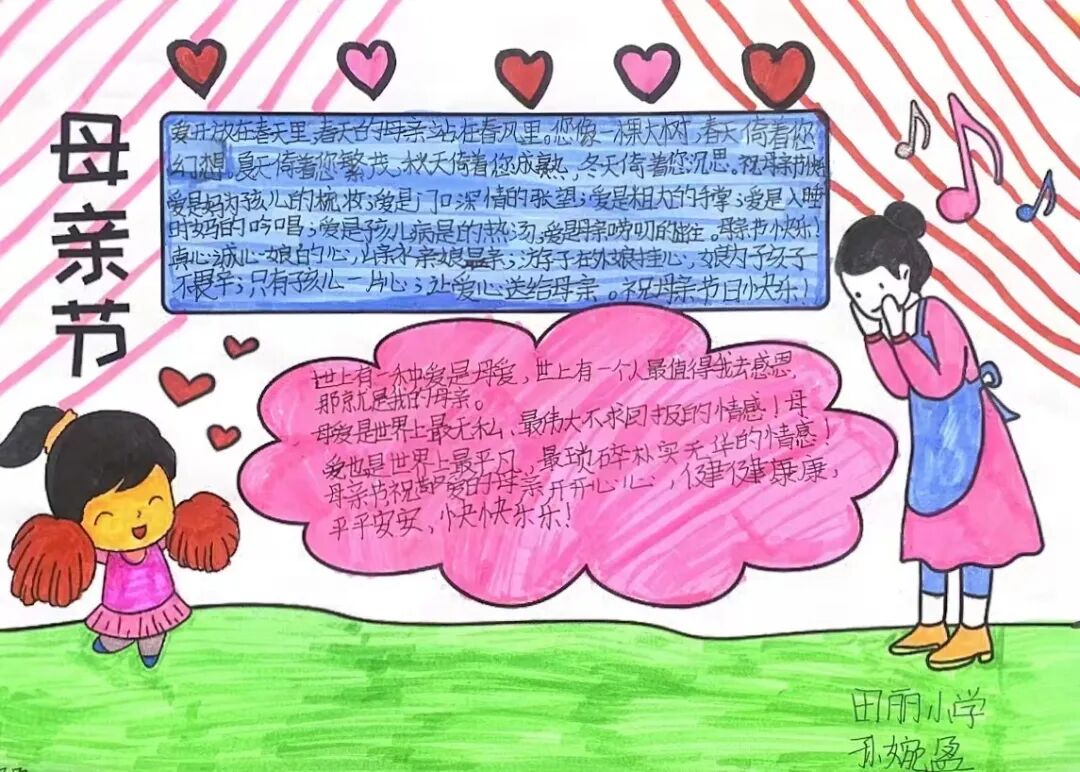 母亲节
爱开放在春天里，春天的母亲站在春风里。您像一棵大树，春天倚着您
幻想。夏天倚着您繁茂，秋天倚着您成熟，冬天倚着您沉思。祝母亲节快
爱是妈为孩儿的梳妆；爱是门口深情的张望；爱是粗大的手掌；爱是入睡
时妈妈的吟唱；爱是孩儿病是的热汤；爱是母亲唠叨的。母亲节快乐！
真心诚心娘的心，山亲水亲娘最亲；游子在外娘挂心，娘为子孩子
不恨辛；只有孩儿一片心；让爱心送给母亲。祝母亲节日快乐！
世上有一种爱是母爱，世上有一个人最值得我去感恩，
那就是我的母亲。
母爱是世界上最无私、最伟大不求回报的情感！母
爱也是世界上最平凡，最琐碎朴实无华的情感！
母亲节祝爱的母亲开开心心，健健康康，
平平安安、快快乐乐！
田丽小学
孙婉盈